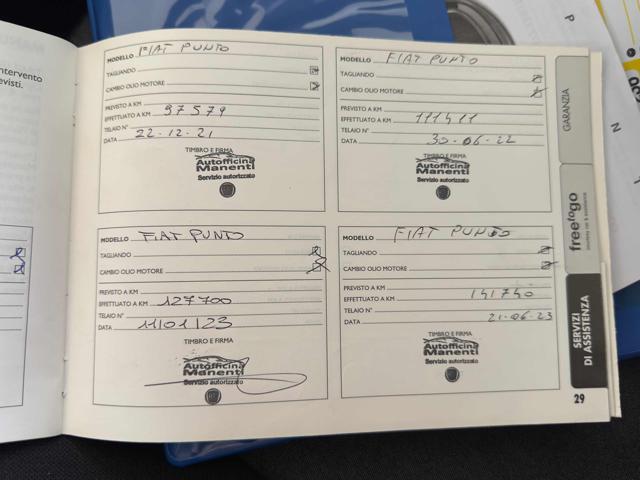 ntervento
evisti.
MODELLO FIAT PUNTO
TAGLIANDO
CAMBIO OLIO MOTORE
PREVISTO A KM
EFFETTUATO A KM 97579
TELAIO N°
DATA 22-12-21
TIMBRO E FIRMA
Autofficina
Manenti
Servizio autorizzato
MODELLO FIAT PUNTO
TAGLIANDO
CAMBIO OLIO MOTORE
PREVISTO A KM
EFFETTUATO A KM 111411
TELAIO N°
DATA 30-06-22
TIMBRO E FIRMA
Autofficina
Manenti
Servizio autorizzato
MODELLO FIAT PUNTO
TAGLIANDO
CAMBIO OLIO MOTORE
PREVISTO A KM
EFFETTUATO A KM 127700
TELAIO N°
DATA 11/01/23
TIMBRO E FIRMA
Autofficina
Manenti
Servizio autorizzato
MODELLO FIAT PUNTO
TAGLIANDO
CAMBIO OLIO MOTORE
PREVISTO A KM
EFFETTUATO A KM 141740
TELAIO N°
DATA 21-06-23
TIMBRO E FIRMA
Autofficina
Manenti
Servizio autorizzato
GARANZIA
freetogo
SERVIZI
DI ASSISTENZA
29